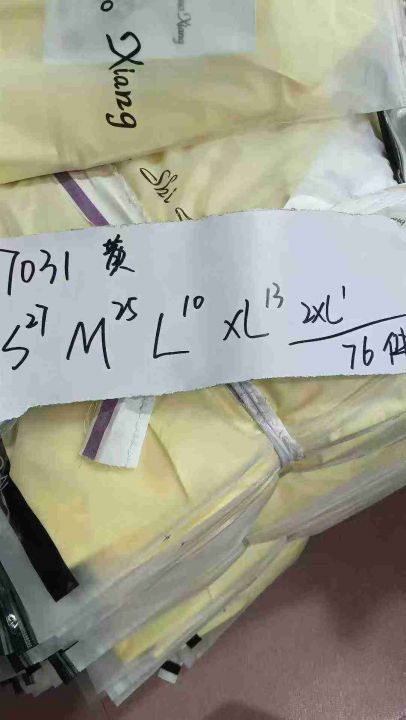 Xiang
7031 黄
S27 M25 L10 XL13 2XL1
76件